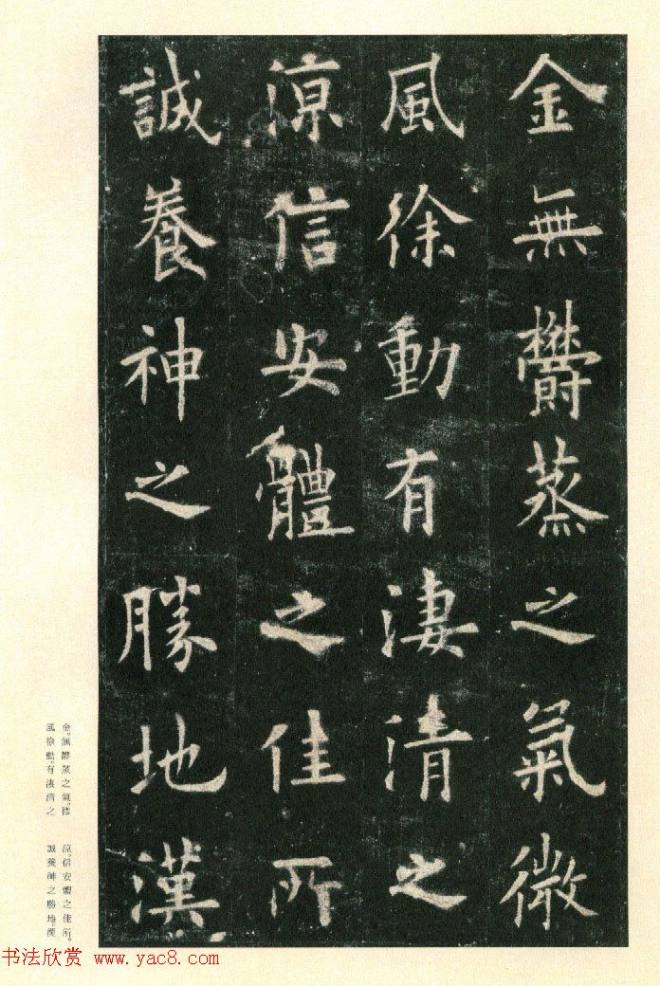 金無鬱蒸之氣微
風徐動有淒清之
涼信安體之佳所
誠養神之勝地漢
金。無鬱蒸之氣。微
風徐動。有淒清之
涼。信安體之佳所。
誠養神之勝地。漢
书法欣赏 www.yac8.com